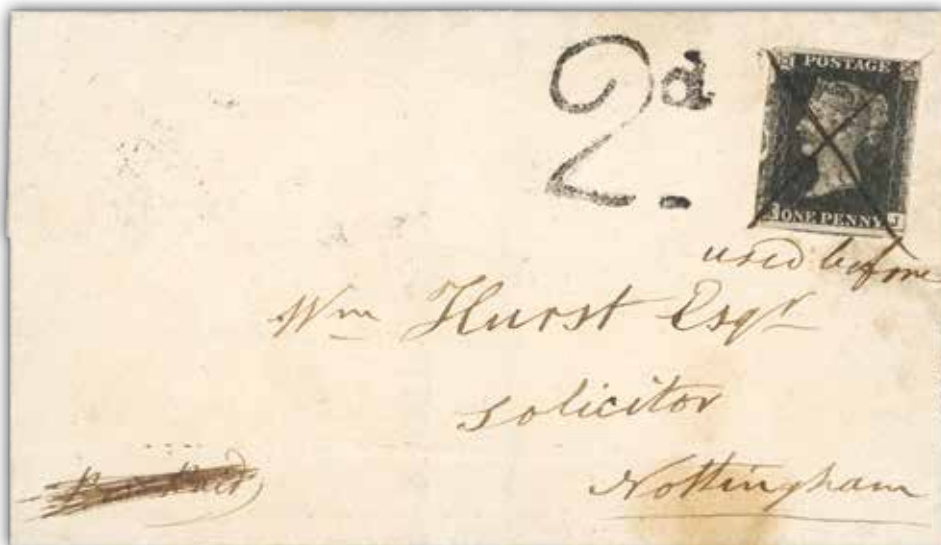 2d
POSTAGE
ONE PENNY
J
used before
Wm Hurst Esqr
Solicitor
Nottingham